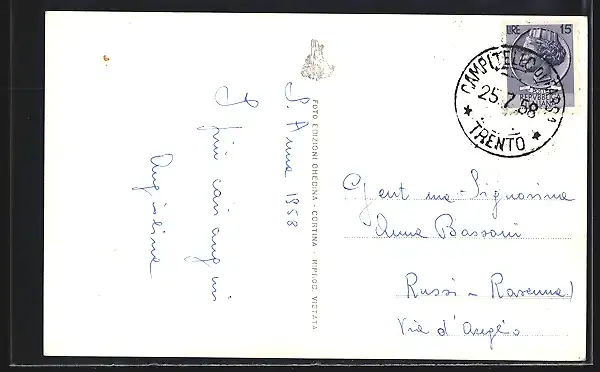 LIRE 15
REPUBBLICA
ITALIANA
CAMPITELLO DI FASSA
25.7.58
* TRENTO *
S. Anna 1958
I più cari auguri
Angiolina
FOTO EDIZIONI GHEDINA - CORTINA - RIPROD. VIETATA
Gent ma - Signorina
Anna Bassani
Russi - Ravenna)
Via d'Angelo